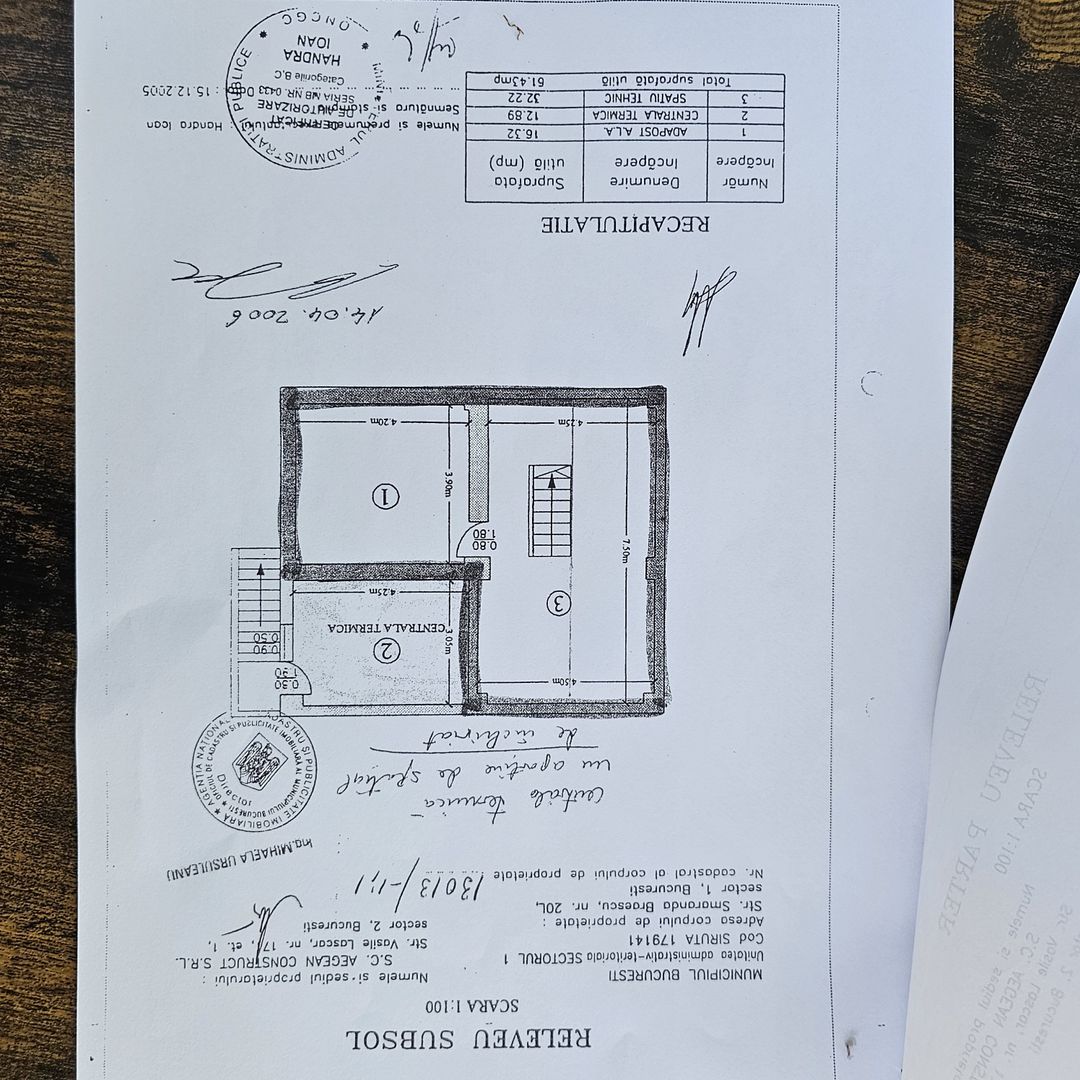 RELEVEU SUBSOL
SCARA 1:100
MUNICIPIUL BUCURESTI
Unitatea administrativ-teritoriala SECTORUL 1
Cod SIRUTA 179141
Adresa corpului de proprietate :
Str. Smaranda Braescu, nr. 20L,
sector 1, Bucuresti
Nr. cadastral al corpului de proprietate 13013/-1;1
Numele si sediul proprietarului :
S.C. AEGEAN CONSTRUCT S.R.L.
Str. Vasile Lascar, nr. 17, et. 1,
sector 2, Bucuresti
Ing.MIHAELA URSULEANU
AGENTIA NATIONALA DE CADASTRU SI PUBLICITATE IMOBILIARA
OFICIUL DE CADASTRU SI PUBLICITATE IMOBILIARA AL MUNICIPIULUI BUCURESTI
Director
Centrala termica
nu apartine de spatiul
de inchiriat
4.50m
0.80
1.90
2
CENTRALA TERMICA
3.05m
0.90
0.50
4.25m
3
7.50m
0.80
1.80
1
3.90m
4.25m
4.20m
14.04.2006
RECAPITULATIE
Număr încăpere Denumire încăpere Suprafata utilă (mp)
1 ADAPOST A.L.A. 16.32
2 CENTRALA TERMICA 12.89
3 SPATIU TEHNIC 32.22
Total suprafată utilă 61.43mp
Numele si prenumele : Handra Ioan
Semnătura si stampila
Data : 15.12.2005
ADMINISTRATIEI PUBLICE
ONCGC
CERTIFICAT
DE AUTORIZARE
SERIA MB NR. 0433
Categoriile B,C
HANDRA
IOAN
RELEVEU PARTER
SCARA 1:100
Numele si sediul
S.C. AEGEAN
Str. Vasile Lascar, nr.
Bucuresti